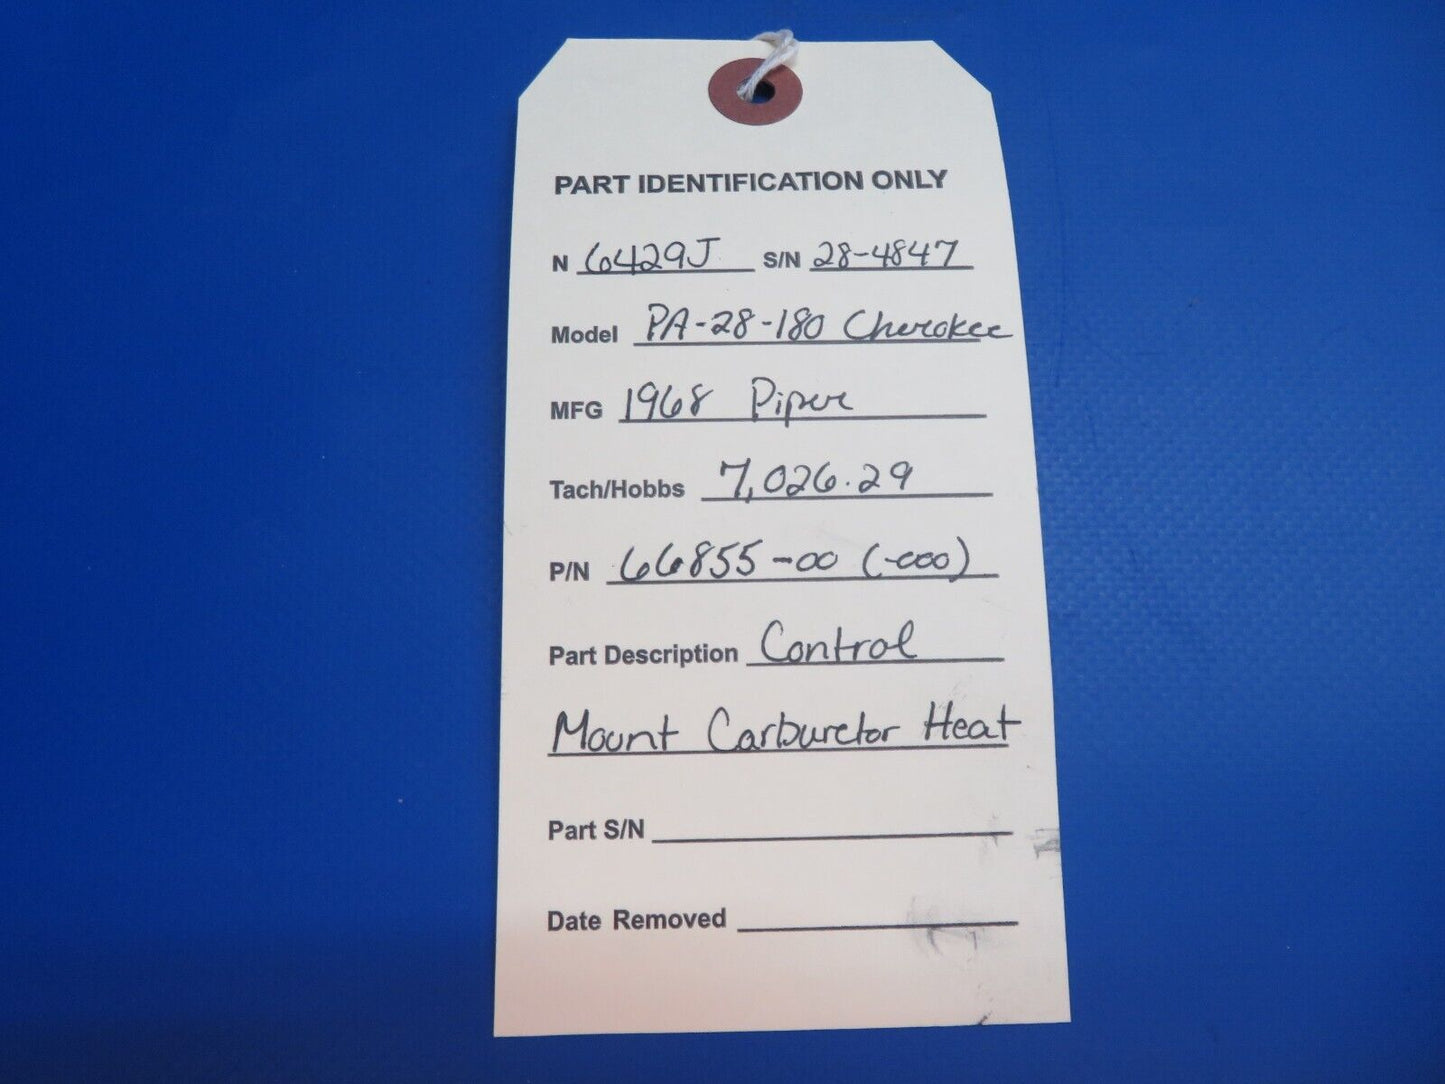 PART IDENTIFICATION ONLY
N 6429J S/N 28-4847
Model PA-28-180 Cherokee
MFG 1968 Piper
Tach/Hobbs 7,026.29
P/N 66855-00 (-000)
Part Description Control
Mount Carburetor Heat
Part S/N
Date Removed